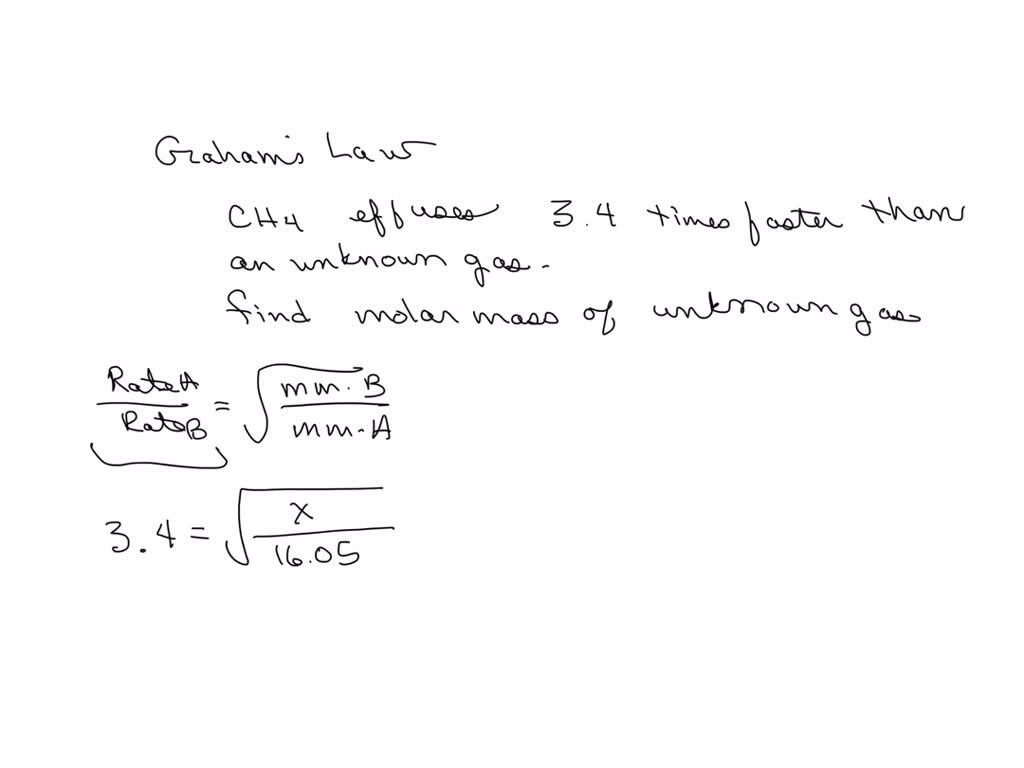 Graham's Law
CH4 effuses 3.4 times faster than
an unknown gas.
find molar mass of unknown gas
Rate A / Rate B = √(mm. B / mm. A)
3.4 = √(x / 16.05)